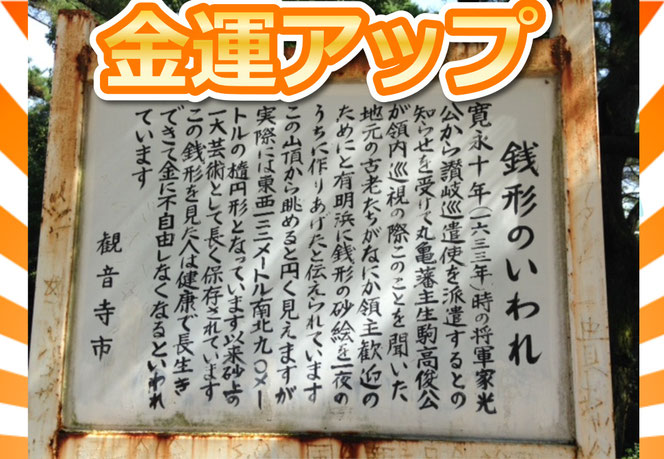 金運アップ
銭形のいわれ
寛永十年(一六三三年)時の将軍家光
公から讃岐巡遣使を派遣するとの
知らせを受けて丸亀藩主生駒高俊公
が領内巡視の際このことを聞いた
地元の古老たちがなにか領主歓迎の
ためにと有明浜に銭形の砂絵を一夜の
うちに作りあげたと伝えられています
この山頂から眺めると円く見えますが
実際には東西一二二メートル南北九〇メー
トルの楕円形となっています以来砂上の
一大芸術として長く保存されています
この銭形を見た人は健康で長生き
できて金に不自由しなくなるといわれ
ています
観音寺市